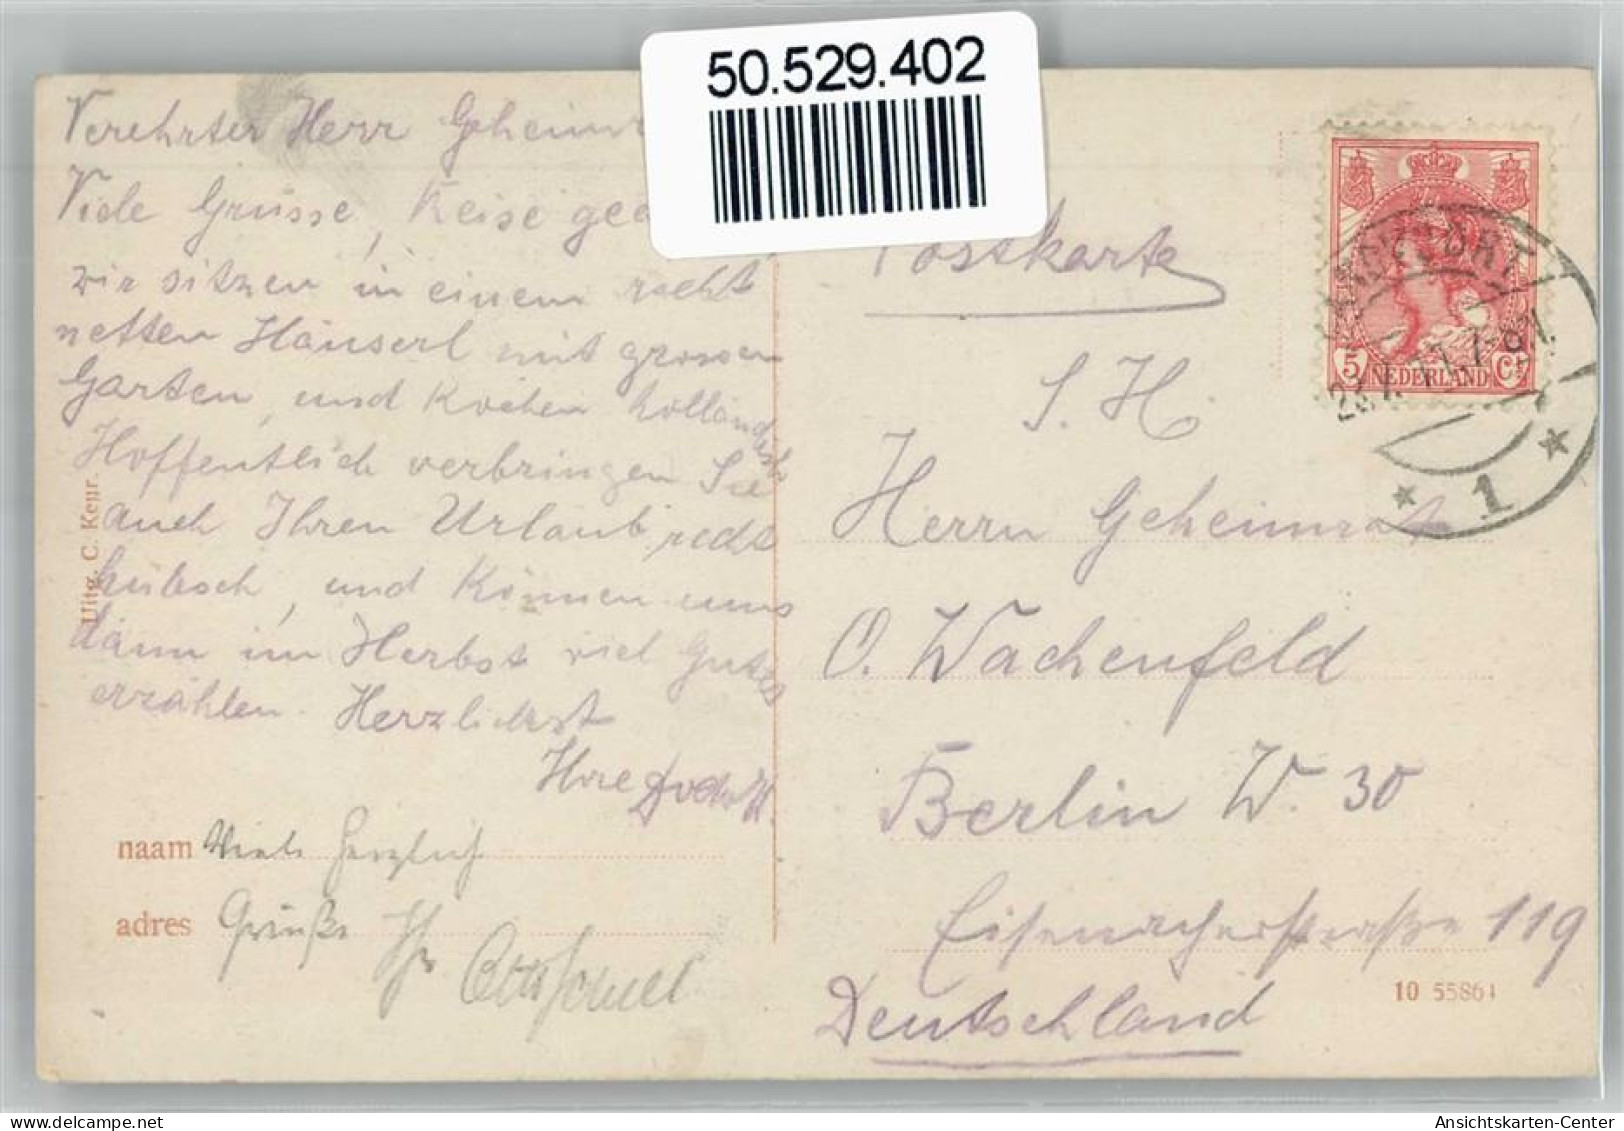 50.529.402
Verehrter Herr Geheimr
Viele Grüsse, Reise
wir sitzen in einem recht
netten Häuserl mit grossen
Garten, und kochen holländisch
Hoffentlich verbringen Sie
auch Ihren Urlaub recht
hübsch, und können uns
dann im Herbst viel Gutes
erzählen. Herzlichst
Ihre
Viele herzlich
Grüße Ihr
naam
adres
Uitg. C. Kepr.
Postkarte
S. H.
Herrn Geheimrat
O. Wachenfeld
Berlin W. 30
Eisenacherstraße 119
Deutschland
10 55864
5 NEDERLAND Ct
1
Ansichtskarten-Center